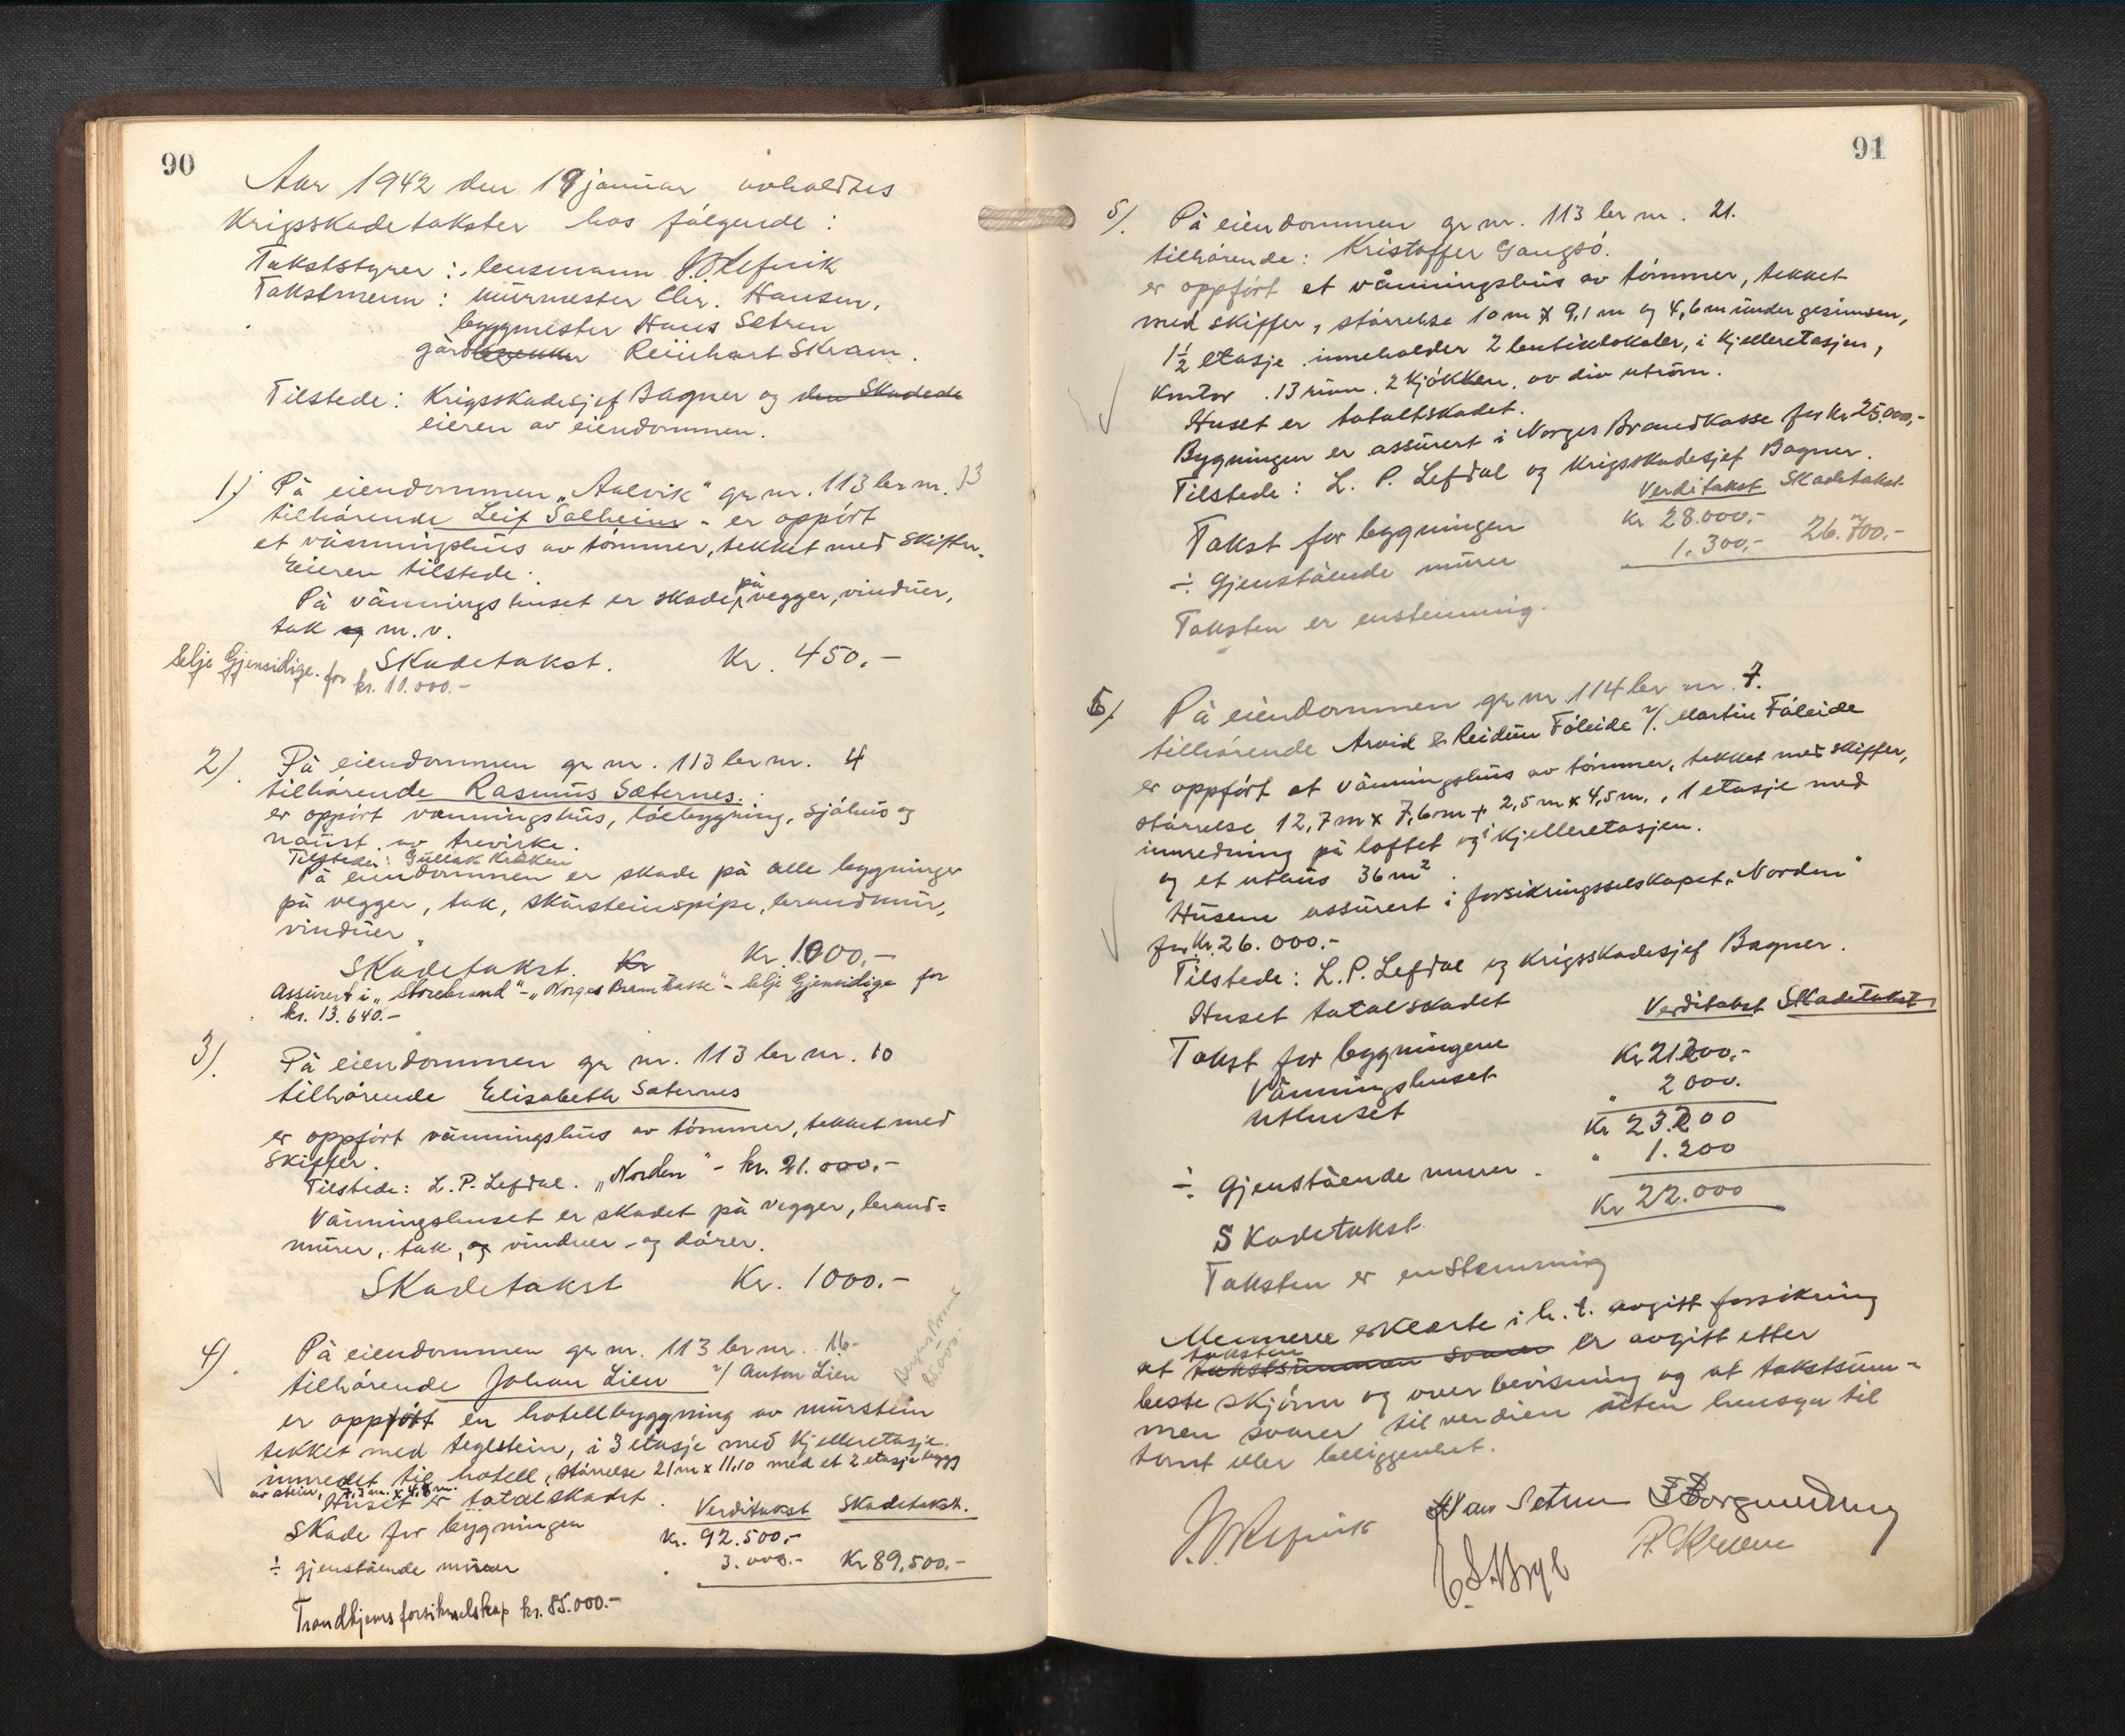 90
Aar 1942 den 19 januar avholdtes
Krigsskadetakster hos følgende :
Takststyrer : lensmann
Takstmenn : murmester Chr. Hansen,
byggmester Hans Sætren
gård Reinhart Skram.
Tilstede : Krigsskadesjef Bagner og den Skadede
eieren av eiendommen.
1) På eiendommen „Aalvik" gr nr. 113 br nr. 13
tilhørende Leif Solheim - er oppört
et våningshus av tømmer, tekket med skiffer.
Eieren tilstede.
På vånningshuset er skade på vegger, vinduer,
tak og m.v.
Skadetakst. Kr. 450.-
Selje Gjensidige. for
kr. 10.000.-
2). På eiendommen gr nr. 113 br nr. 4
tilhørende Rasmus Sæternes.
er oppört vanningshus, löebygning, sjöhus og
naust av trevirke.
Tilstede: Gullak
På eiendommen er skade på alle bygninger
på vegger, tak, skursteinspipe, brandmur,
vinduer.
Skadetakst. Kr Kr. 1000.-
Assurert i „Storebrand" - „Norges Brannkasse" - Selje Gjensidige for
kr. 13.640.-
3). På eiendommen gr nr. 113 br nr. 10
tilhørende Elisabeth Sæternes
er oppført vånningshus av tømmer, tekket med
Skiffer.
Tilstede: L. P. Lefdal. „Norden" - kr. 21.000.-
Vånningshuset er skadet på vegger, brand=
murer, tak, og vinduer - og dörer.
Skadetakst Kr. 1000.-
4). På eiendommen gr nr. 113 br nr. 16-
tilhørende Johan Lien v/ Anton Lien
85.000.
er oppfört en hotellbyggning av murstein
tekket med teglstein, i 3 etasje med kjelleretasje.
innredet til hotell, størrelse 21 m x 11,10 med et 2 etasje bygg
av stein, 7,3 m. x 4,8 m.
Huset er totalskadet. Verditakst Skadetakst.
Skade for bygningen Kr. 92.500,-
÷ gjenstående murer 3.000.- Kr 89.500,-
Trondhjems forsikrselskap kr. 85.000.-
91
5). På eiendommen gr nr. 113 br nr. 21.
tilhørende: Kristoffer Gangsö.
er oppfört et vånningshus av tömmer, tekket
med skiffer, størrelse 10 m x 9,1 m og 4,6 m under gesimsen,
1½ etasje. inneholder 2 butiklokaler, i kjelleretasjen,
Kontor. 13 rum. 2 kjökken. av div utröm.
Huset er totaltskadet.
Bygningen er assurert i Norges Brandkasse for kr 25.000,-
Tilstede: L. P. Lefdal og Krigsskadesjef Bagner.
Verditakst Skadetakst.
Takst for bygningen Kr 28.000,-
÷ Gjenstående murer 1.300,- 26.700.-
Taksten er enstemmig.
6). På eiendommen gr nr. 114 br nr. 7.
tilhørende Arvid & Reidun Fóleide v/ Martin Fóleide
er oppfört et vånningshus av tömmer, tekket med skiffer,
størrelse 12,7 m x 7,6 m + 2,5 m x 4,5 m., 1 etasje med
innredning på loftet og i kjelleretasjen.
og et uthus 36 m².
Husene assurert i forsikringsselskapet „Norden"
for Kr. 26.000.-
Tilstede: L. P. Lefdal og Krigsskadesjef Bagner.
Huset totalskadet Verditakst Skadetakst
Takst for bygningene
Vånningshuset Kr 21.200.-
Uthuset " 2000.
Kr 23.200
÷ gjenstående murer. " 1.200
Skadetakst. Kr 22.000
Taksten er enstemmig
Mennene erklærte i h. t. avgitt forsikring
at taksten takstsummen svarer er avgitt etter
beste skjönn og overbevisning og at takstsum=
men svarer til verdien uten hensyn til
tomt eller beliggenhet.
Hans Setren